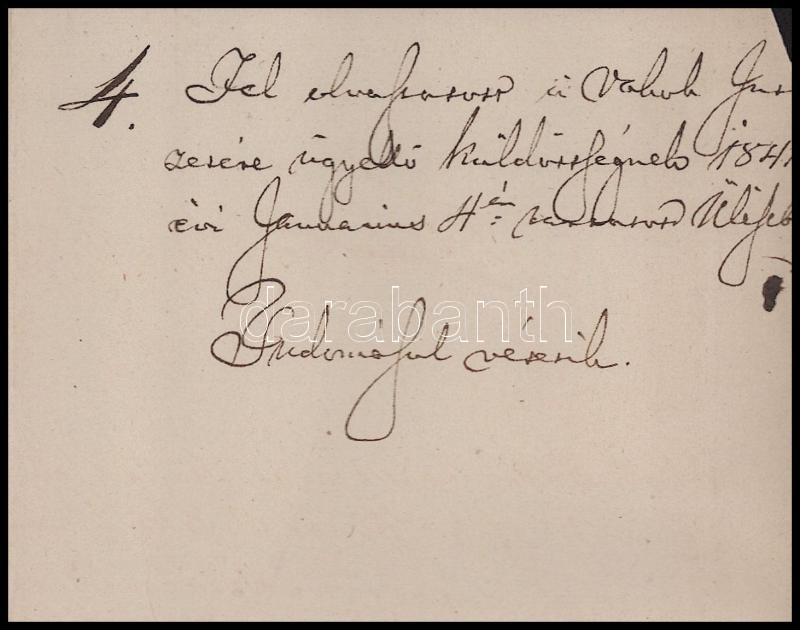 4. Fel olvastatott a Vakok In
zetére ügyelő küldöttségnek 184
évi Januarius 4én tartatott Ülés
Tudomásul vétetik.
darabanth.com